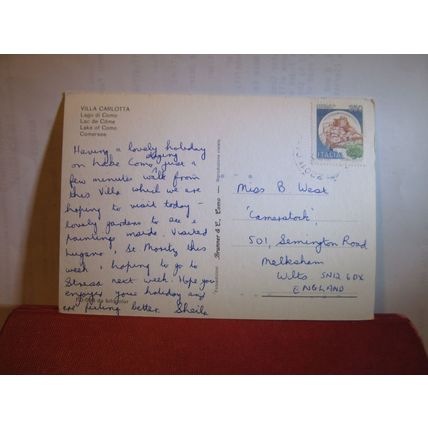 VILLA CARLOTTA
Lago di Como
Lac de Côme
Lake of Como
Comersee
Having a lovely holiday
on Lake Como, staying just a
few minutes walk from
this Villa which we are
hoping to visit today -
lovely gardens to see &
paintings inside. Visited
Lugano, St Moritz this
week & hoping to go to
Stresa next week. Hope you
enjoyed your holiday and
are feeling better. Sheila
Brunner & C., Como
Riproduzione vietata
ITALIA
Miss B West
'Camerstock',
501, Semington Road
Melksham
Wilts SN12 6DX
ENGLAND